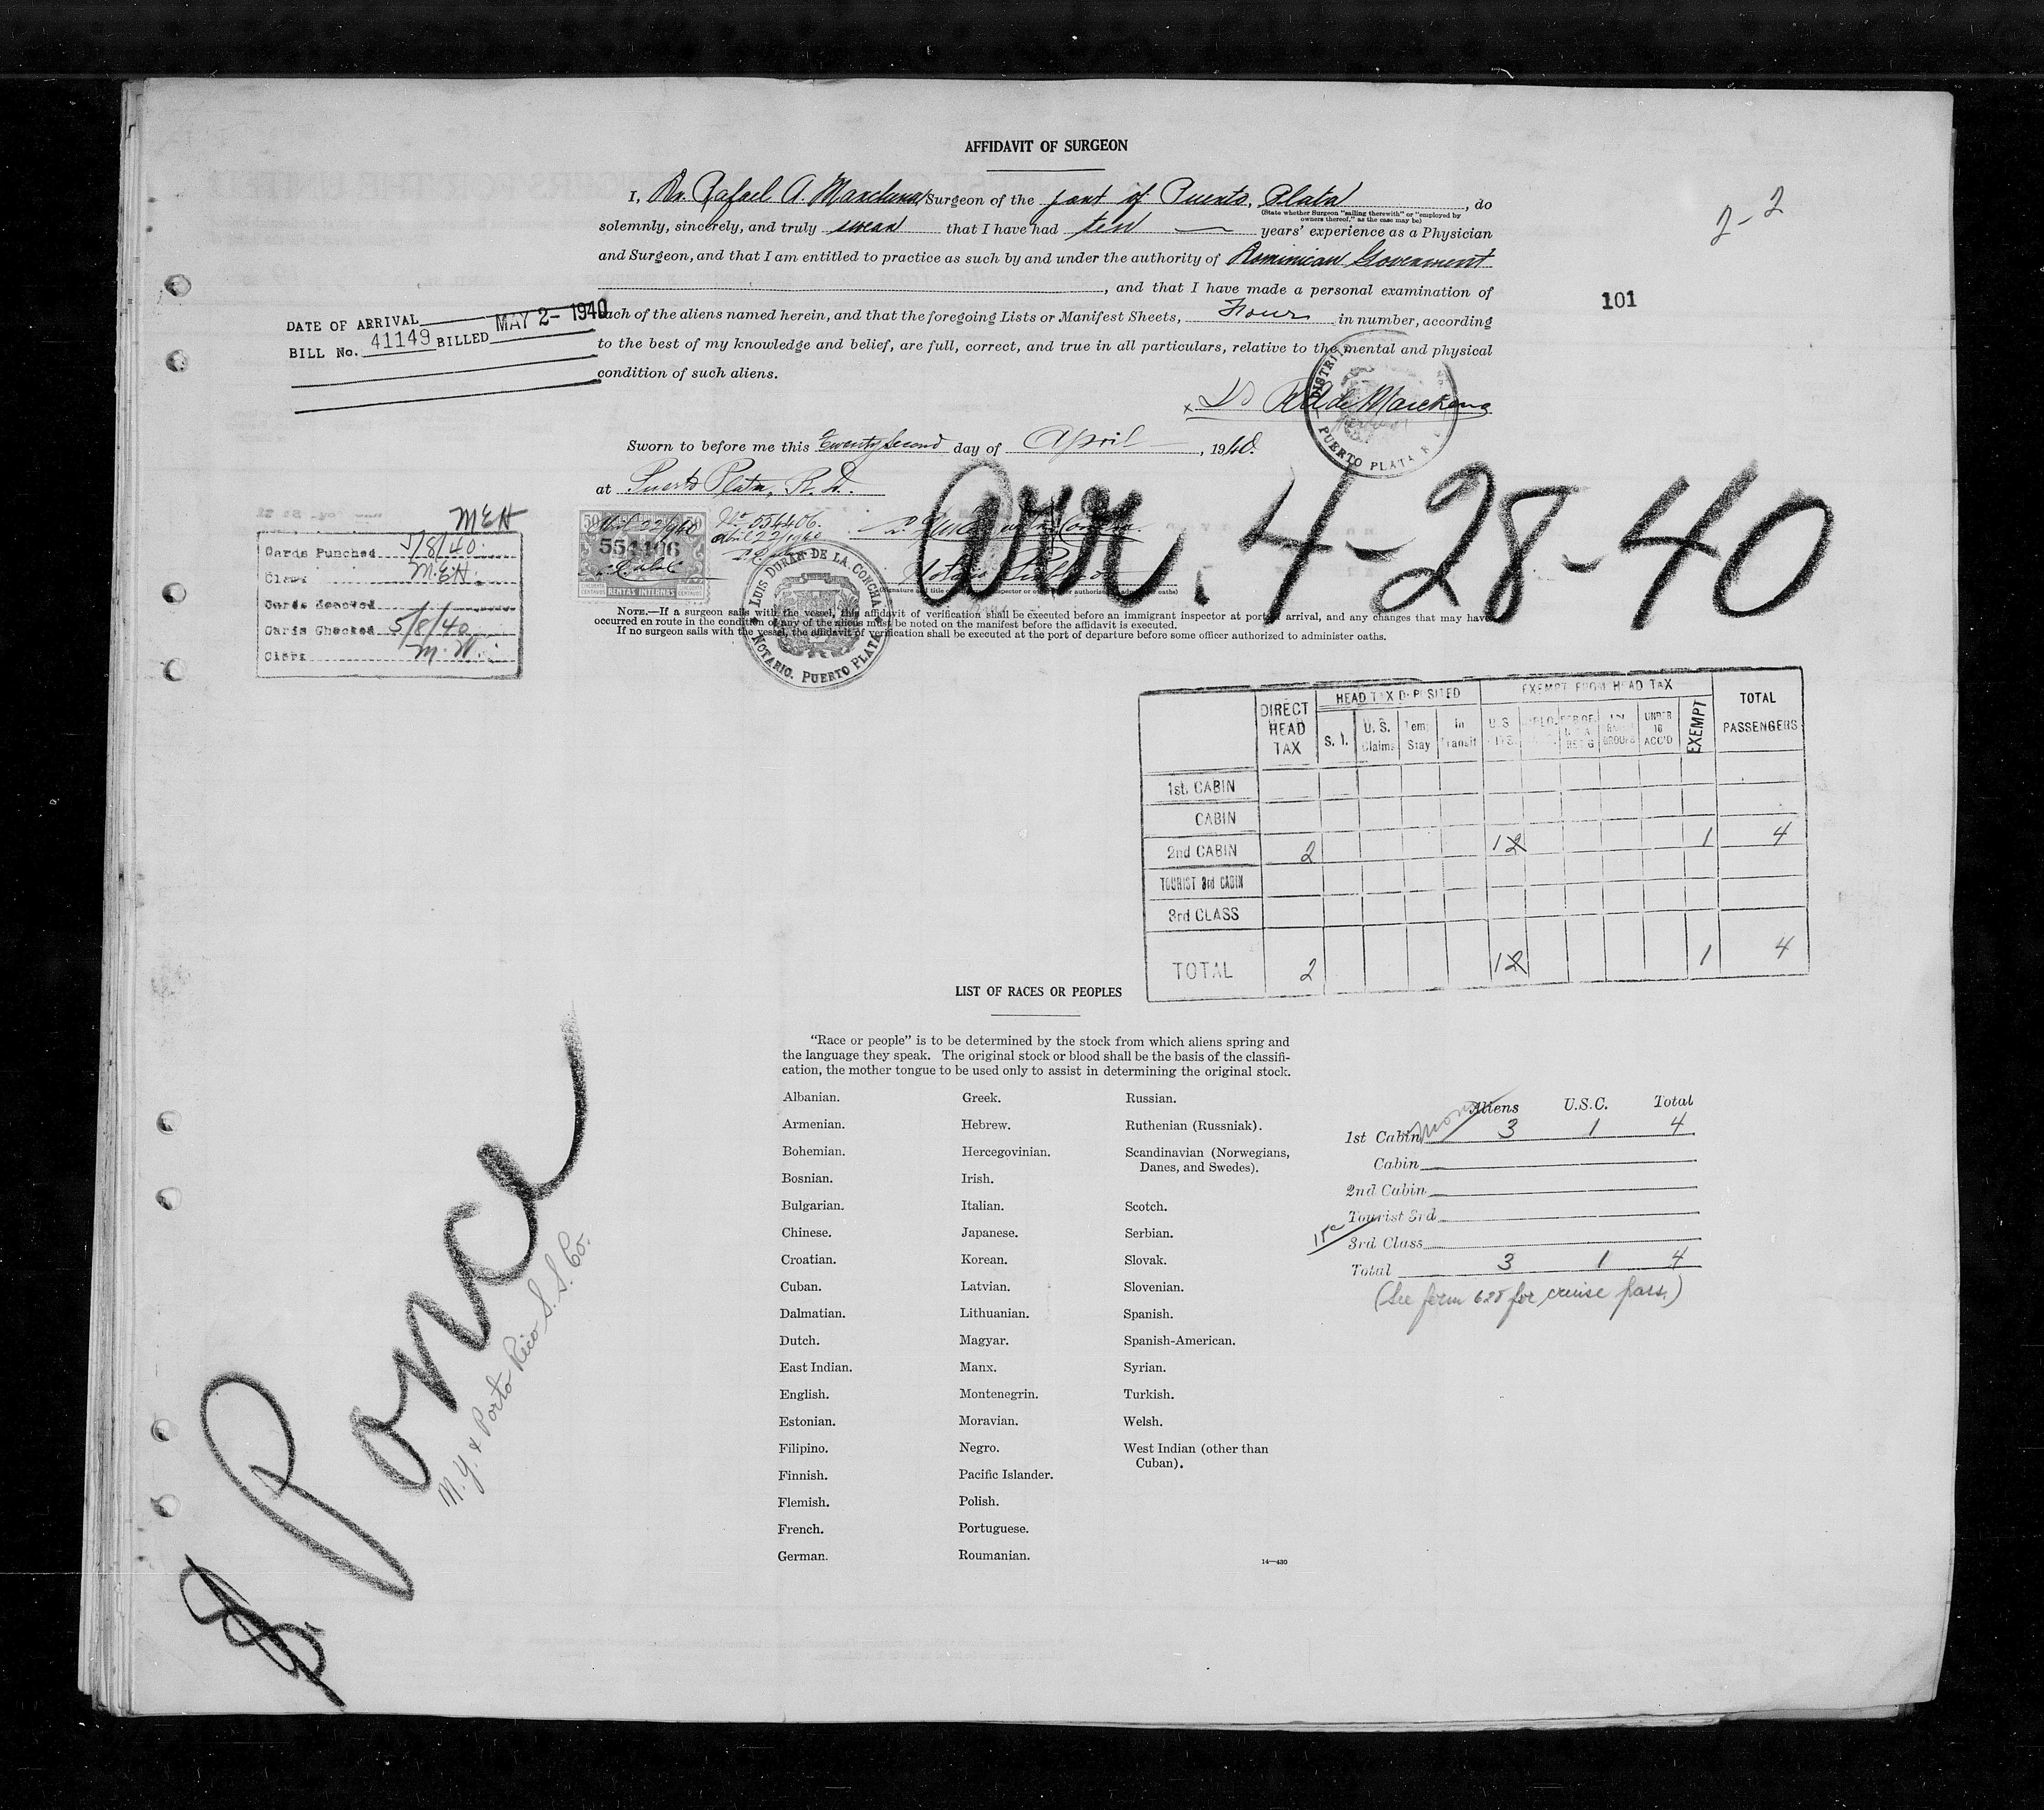 AFFIDAVIT OF SURGEON
I, Dr. Rafael A. Surgeon of the port of Puerto Plata, do
(State whether Surgeon "sailing therewith" or "employed by
owners thereof," as the case may be)
solemnly, sincerely, and truly swear that I have had ten years' experience as a Physician
and Surgeon, and that I am entitled to practice as such by and under the authority of Dominican Government
, and that I have made a personal examination of
each of the aliens named herein, and that the foregoing Lists or Manifest Sheets, in number, according
to the best of my knowledge and belief, are full, correct, and true in all particulars, relative to the mental and physical
condition of such aliens.
2-2
101
DATE OF ARRIVAL
BILL No. 41149 BILLED MAY 2- 1940
DISTRITO
PUERTO PLATA
Sworn to before me this Twenty Second day of April, 1940.
at Puerto Plata, R. D.
Arr. 4-28-40
50 50
554406
RENTAS INTERNAS
No. 554406.
Abril 22/1940
LUIS DURAN DE LA CONCHA
NOTARIO. PUERTO PLATA
MEH
Cards Punched 5/8/40
Clerk M.E.H.
Cards Checked 5/8/40
Clerk
NOTE.—If a surgeon sails with the vessel, this affidavit of verification shall be executed before an immigrant inspector at port of arrival, and any changes that may have
occurred en route in the condition of any of the aliens must be noted on the manifest before the affidavit is executed.
If no surgeon sails with the vessel, the affidavit of verification shall be executed at the port of departure before some officer authorized to administer oaths.
DIRECT HEAD TAX
HEAD TAX DEPOSITED
EXEMPT FROM HEAD TAX
TOTAL PASSENGERS
S. I.
U. S. Claims
Tem. Stay
In Transit
UNDER 16 ACC'D
EXEMPT
1st. CABIN
CABIN
2nd CABIN 2 1 2 1 4
TOURIST 3rd CABIN
3rd CLASS
TOTAL 2 1 2 1 4
LIST OF RACES OR PEOPLES
"Race or people" is to be determined by the stock from which aliens spring and
the language they speak. The original stock or blood shall be the basis of the classifi-
cation, the mother tongue to be used only to assist in determining the original stock.
Albanian. Greek. Russian.
Armenian. Hebrew. Ruthenian (Russniak).
Bohemian. Hercegovinian. Scandinavian (Norwegians,
Danes, and Swedes).
Bosnian. Irish.
Bulgarian. Italian. Scotch.
Chinese. Japanese. Serbian.
Croatian. Korean. Slovak.
Cuban. Latvian. Slovenian.
Dalmatian. Lithuanian. Spanish.
Dutch. Magyar. Spanish-American.
East Indian. Manx. Syrian.
English. Montenegrin. Turkish.
Estonian. Moravian. Welsh.
Filipino. Negro. West Indian (other than
Cuban).
Finnish. Pacific Islander.
Flemish. Polish.
French. Portuguese.
German. Roumanian.
14—430
Aliens U.S.C. Total
1st Cabin 3 1 4
Cabin
2nd Cabin
Tourist 3rd
3rd Class
Total 3 1 4
(See form 628 for cruise pass.)
Ponce
N. Y. & Porto Rico S. S. Co.